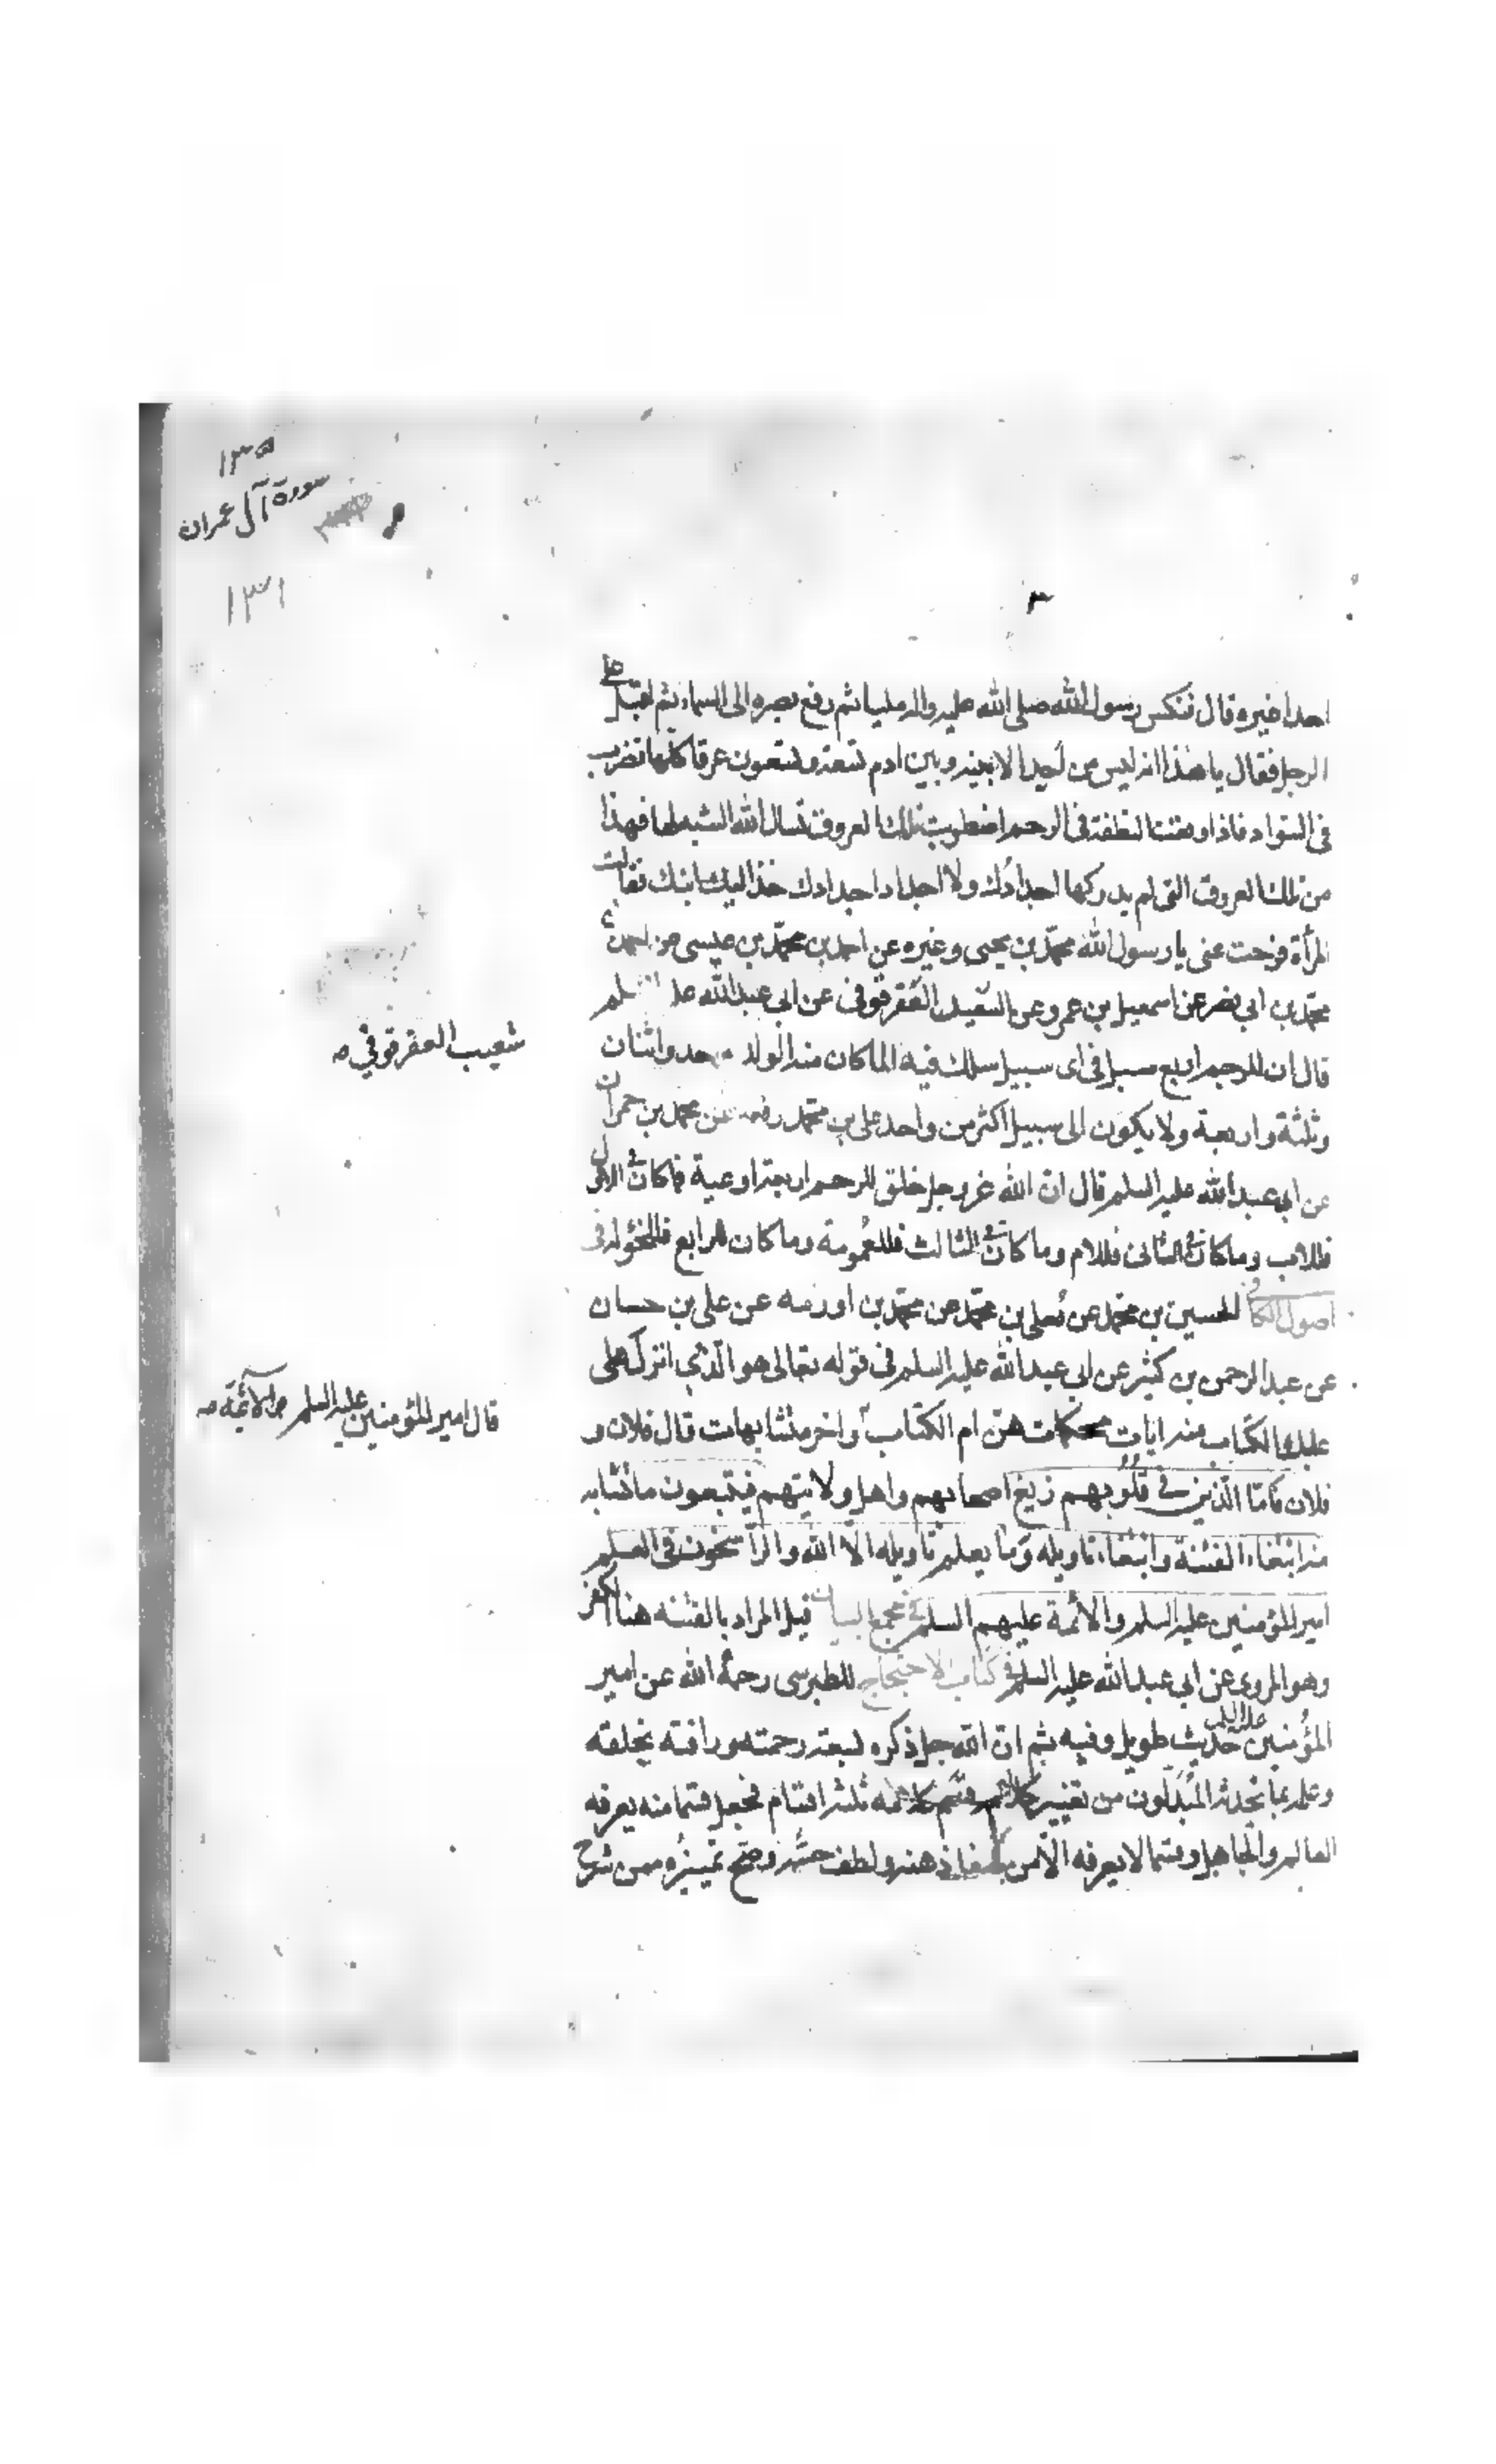 ١٣٥
سورة آل عمران
١٣١
٣
احدا غيره قال فنكس رسول الله صلى الله عليه واله مليا ثم رفع بصره الى السماء ثم اقبل على
الرجل فقال يا هذا انه ليس من احد الا بينه وبين ادم تسعة وتسعون عرقا كلها تضرب
فى النسب فاذا وقعت النطفة فى الرحم اضطربت تلك العروق تسال الله الشبه لها فهذا
من تلك العروق التى لم يدركها اجدادك ولا اجداد اجدادك خذ اليك ابنك فقالت
المرأة فرجت عنى يا رسول الله محمد بن يحيى وغيره عن احمد بن محمد بن عيسى عن احمد بن
محمد بن ابى نصر عن اسمعيل بن عمر وعن العقرقوفى عن ابى عبدالله عليه السلم
قال ان للرحم اربع سبل فى اى سبيل سلك فيه الماكان منه الولد واحد واثنان
وثلثة واربعة ولا يكون الى سبيل اكثر من واحد على بن محمد رفعه عن محمد بن حمران
عن ابى عبدالله عليه السلم قال ان الله عز وجل خلق للرحم اربعة اوعية فما كان فى الاول
فللاب وما كان فى الثانى فللام وما كان فى الثالث فللعمومة وما كان فى الرابع فللخؤلة فى
اصول الكافى الحسين بن محمد عن معلى بن محمد عن محمد بن اورمه عن على بن حسان
عن عبدالرحمن بن كثير عن ابى عبدالله عليه السلم فى قوله تعالى هو الذى انزل على
عليك الكتاب منه ايات محكمات هن ام الكتاب واخر متشابهات قال فلان و
فلان فاما الذين فى قلوبهم زيغ اصحابهم واهل ولايتهم فيتبعون ما تشابه
منه ابتغاء الفتنة وابتغاء تاويله وما يعلم تاويله الا الله والراسخون فى العلم
امير المؤمنين عليه السلم والائمة عليهم السلم فى مجمع البيان قيل المراد بالفتنه هنا الكفر
وهو المروى عن ابى عبدالله عليه السلم فى كتاب الاحتجاج للطبرسى رحمة الله عن امير
المؤمنين عليه السلم حديث طويل وفيه ثم ان الله جل ذكره لسعة رحمته ورافته بخلقه
وعلمه بما يحدثه المبدلون من تغيير كلامه قسم كلامه ثلثة اقسام فجعل قسما منه يعرفه
العالم والجاهل وقسما لا يعرفه الا من صفا ذهنه ولطف حسه وصح تمييزه ممن شرح
شعيب العقرقوفي ص
قال امير المؤمنين عليه السلم والائمة ص